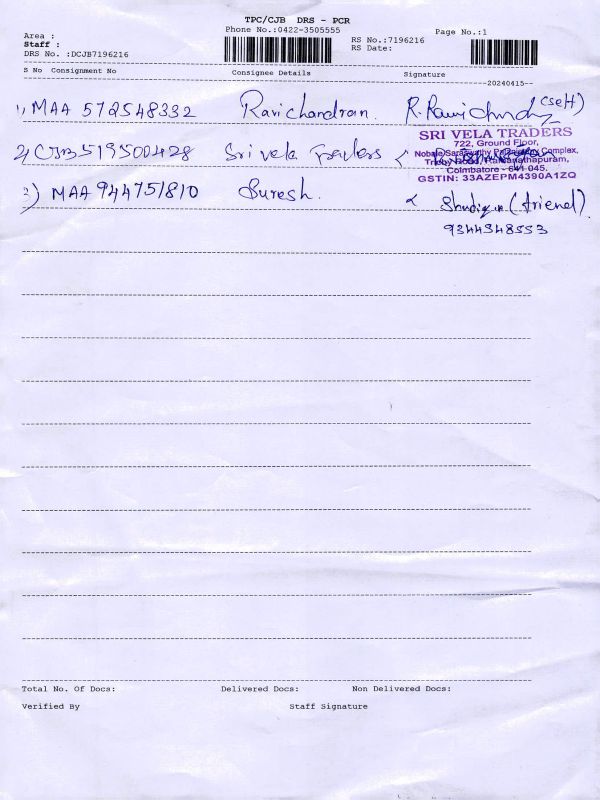 TPC/CJB DRS - PCR
Phone No.:0422-3505555
Page No.:1
Area :
RS No.:7196216
Staff :
RS Date:
DRS No. :DCJB7196216
S No Consignment No Consignee Details Signature
20240415
1) MAA 572548332 Ravichandran R. Ravichndr (self)
2) CJB 519500428 Sri vela Traders
SRI VELA TRADERS
722, Ground Floor,
Complex,
Coimbatore - 641 045.
GSTIN: 33AZEPM4390A1ZQ
3) MAA 944751810 Suresh. (friend)
9344948553
Total No. Of Docs: Delivered Docs: Non Delivered Docs:
Verified By Staff Signature